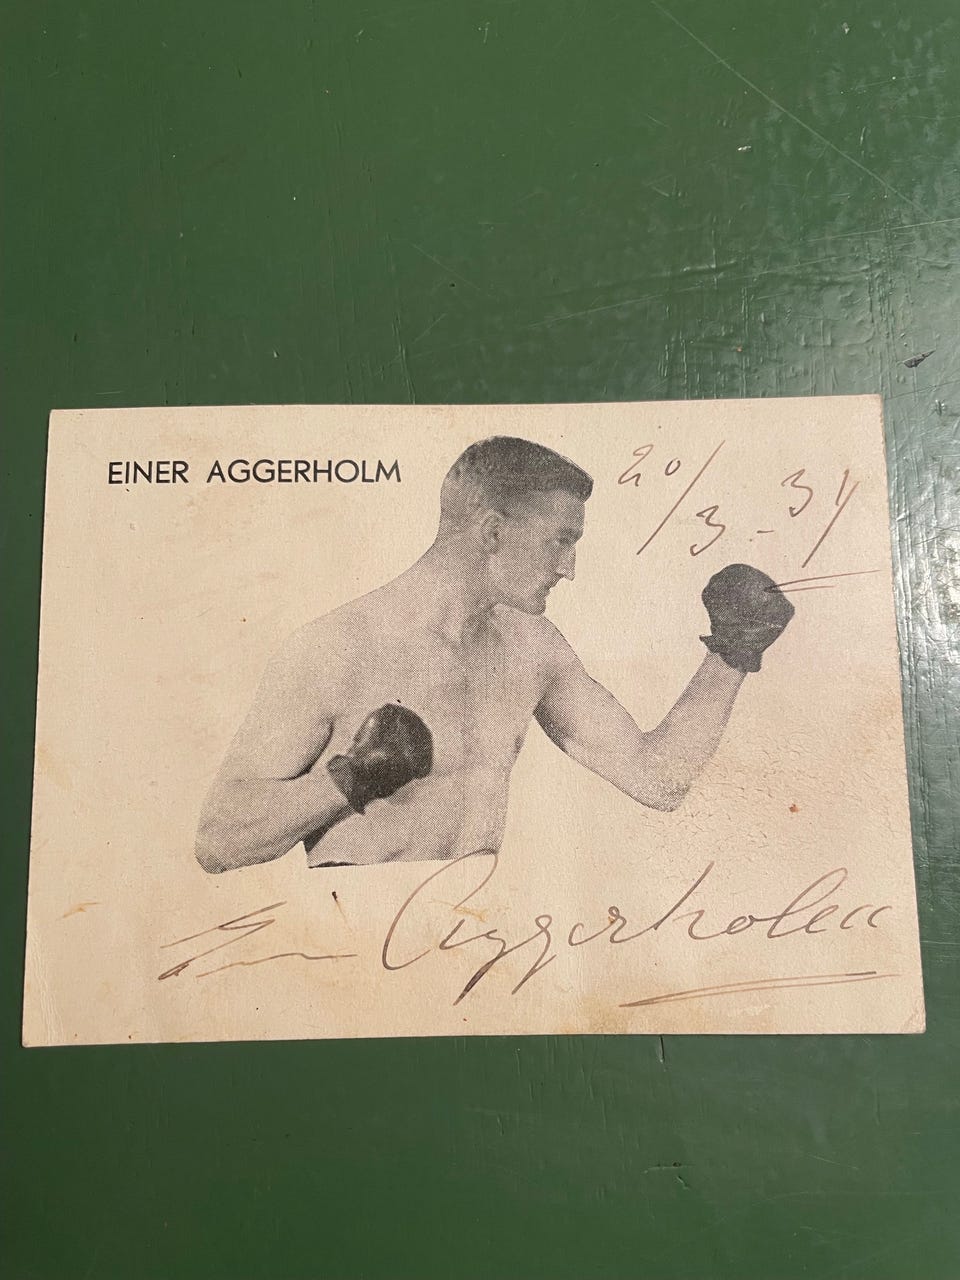 EINER AGGERHOLM
20/3-34
Einer Aggerholm